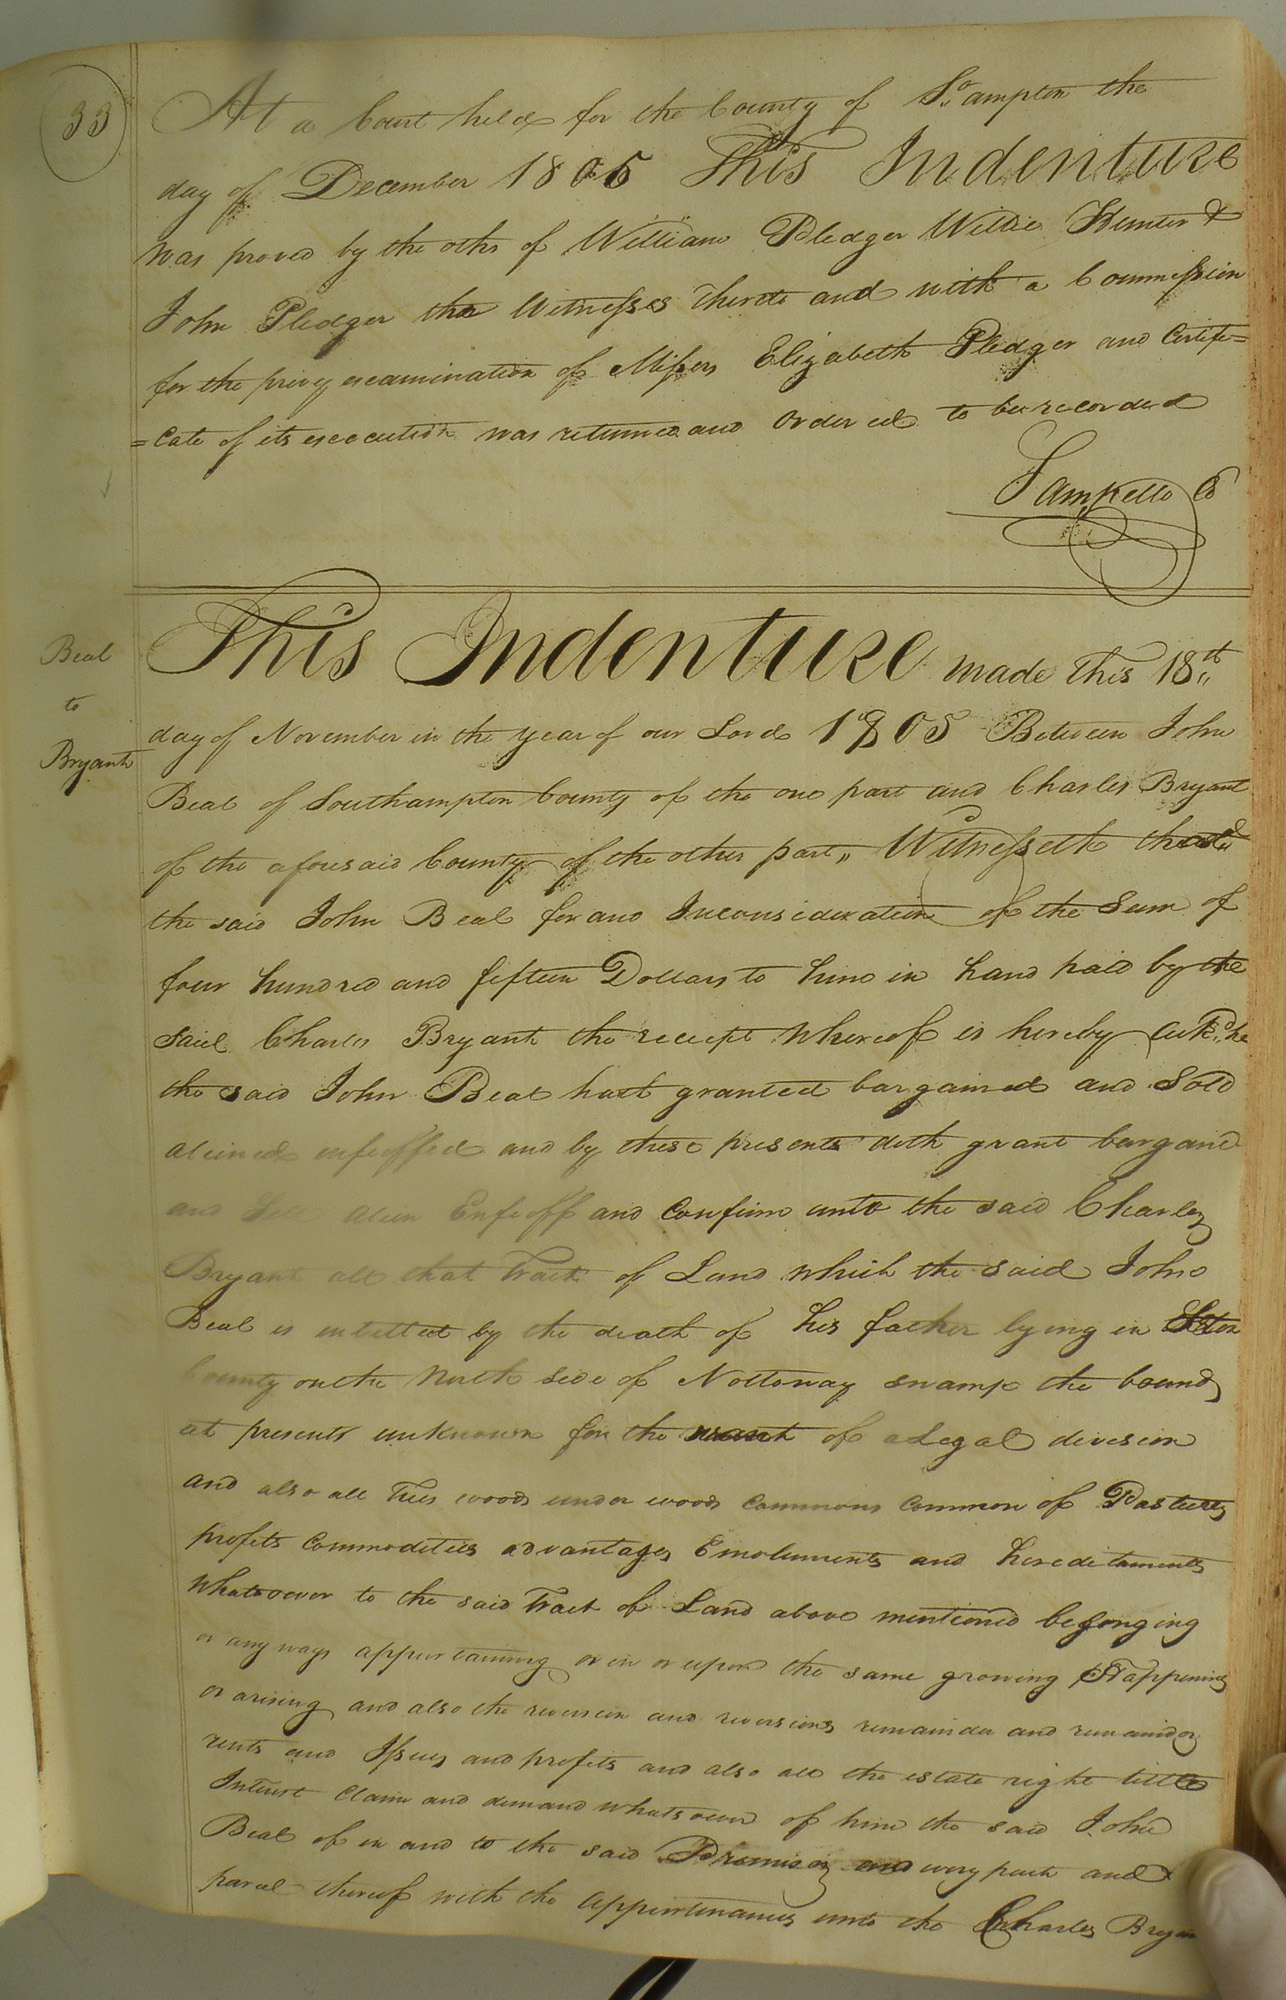 33
At a Court held for the County of So. ampton the
day of December 1805 This Indenture
was proved by the oths of William Pledger Willie Hunter &
John Pledger the Witnesses Thereto and with a Commession
for the privy examination of Missers Elizabeth Pledger and Certifi=
=cate of its execution was returned and Ordered to be recorded
Saml Kello C
Beal
to
Bryant
This Indenture made this 18th
day of November in the year of our Lord 1805 Between John
Beal of Southampton County of the one part and Charles Bryant
of the aforesaid County of the other part,, Witnesseth that
the said John Beal for and Inconsideration of the Sum of
four hundred and fifteen Dollars to him in hand paid by the
said Charles Bryant the receipt Whereof is hereby Ack.d he
the said John Beal hath granted bargained and Sold
aliened enfeoffed and by these presents doth grant bargane
and Sell alien Enfeoff and Confirm unto the said Charles
Bryant all that Tract of Land which the said John
Beal is intitled by the death of his father lying in
County on the North side of Nottoway swamp the bounds
at presents unknown for the want of a Legal division
and also all Trees woods under woods commons common of Pastures
profits Commodities advantages Emoluments and hereditaments
Whatsoever to the said Tract of Land above mentioned belonging
or any ways appurtaining or in or upon the same growing Happening
or arising and also the reversion and reversions remainder and remaindors
rents and Issues and profits and also all the estate right tittle
Interest Claim and demand whatsoever of him the said John
Beal of in and to the said Premises and every part and
parcel thereof with the appurtenances unto the Charles Bryan